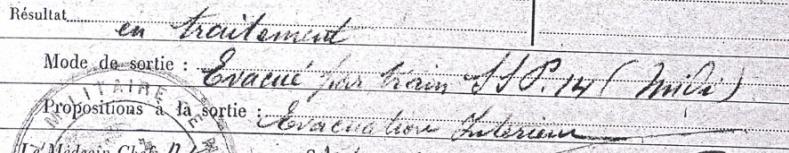 Résultat en traitement
Mode de sortie : Evacué par train SSP. 14 (Midi)
Propositions à la sortie : Evacuation Interieur
MILITAIRE
Le Médecin Chef